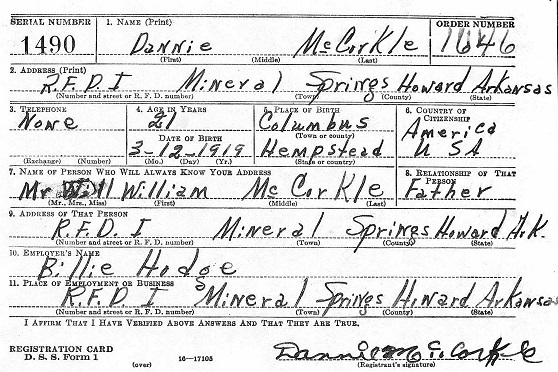 SERIAL NUMBER 1. NAME (Print) ORDER NUMBER
1490 Dannie McCorkle 1646
(First) (Middle) (Last)
2. ADDRESS (Print)
R.F.D. I Mineral Springs Howard Arkansas
(Number and street or R. F. D. number) (Town) (County) (State)
3. TELEPHONE 4. AGE IN YEARS 5. PLACE OF BIRTH 6. COUNTRY OF CITIZENSHIP
None 21 Columbus America
(Town or county)
DATE OF BIRTH
3-12-1919 Hempstead U SA
(Exchange) (Number) (Mo.) (Day) (Yr.) (State or country)
7. NAME OF PERSON WHO WILL ALWAYS KNOW YOUR ADDRESS 8. RELATIONSHIP OF THAT PERSON
Mr William McCorkle Father
(Mr., Mrs., Miss) (First) (Middle) (Last)
9. ADDRESS OF THAT PERSON
R.F.D. I Mineral Springs Howard Ark.
(Number and street or R. F. D. number) (Town) (County) (State)
10. EMPLOYER'S NAME
Billie Hodge
11. PLACE OF EMPLOYMENT OR BUSINESS
R.F.D. I Mineral Springs Howard Arkansas
(Number and street or R. F. D. number) (Town) (County) (State)
I AFFIRM THAT I HAVE VERIFIED ABOVE ANSWERS AND THAT THEY ARE TRUE.
REGISTRATION CARD
D. S. S. Form 1 (over) 16—17105
Dannie McCorkle
(Registrant's signature)